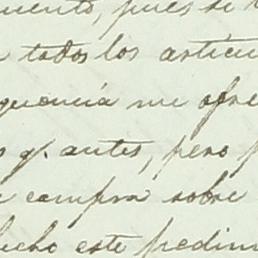 uento, pues si
todos los artícu
quencia me ofre
s q.e antes, pero p
e compra sobre
hecho este pedim